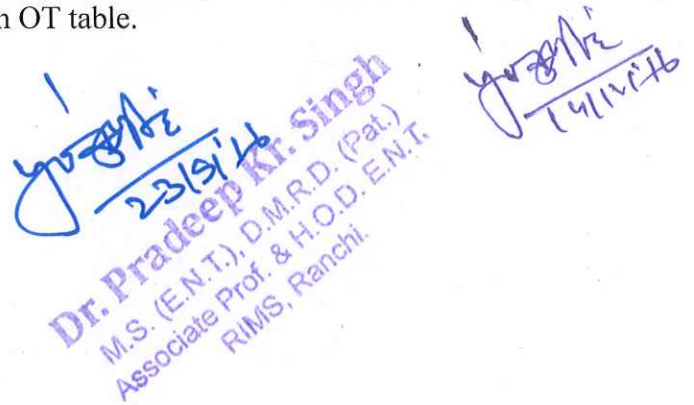 OT table.
23/9/16
14/12/16
Dr. Pradeep Kr. Singh
M.S. (E.N.T.), D.M.R.D. (Pat.)
Associate Prof. & H.O.D. E.N.T.
RIMS, Ranchi.